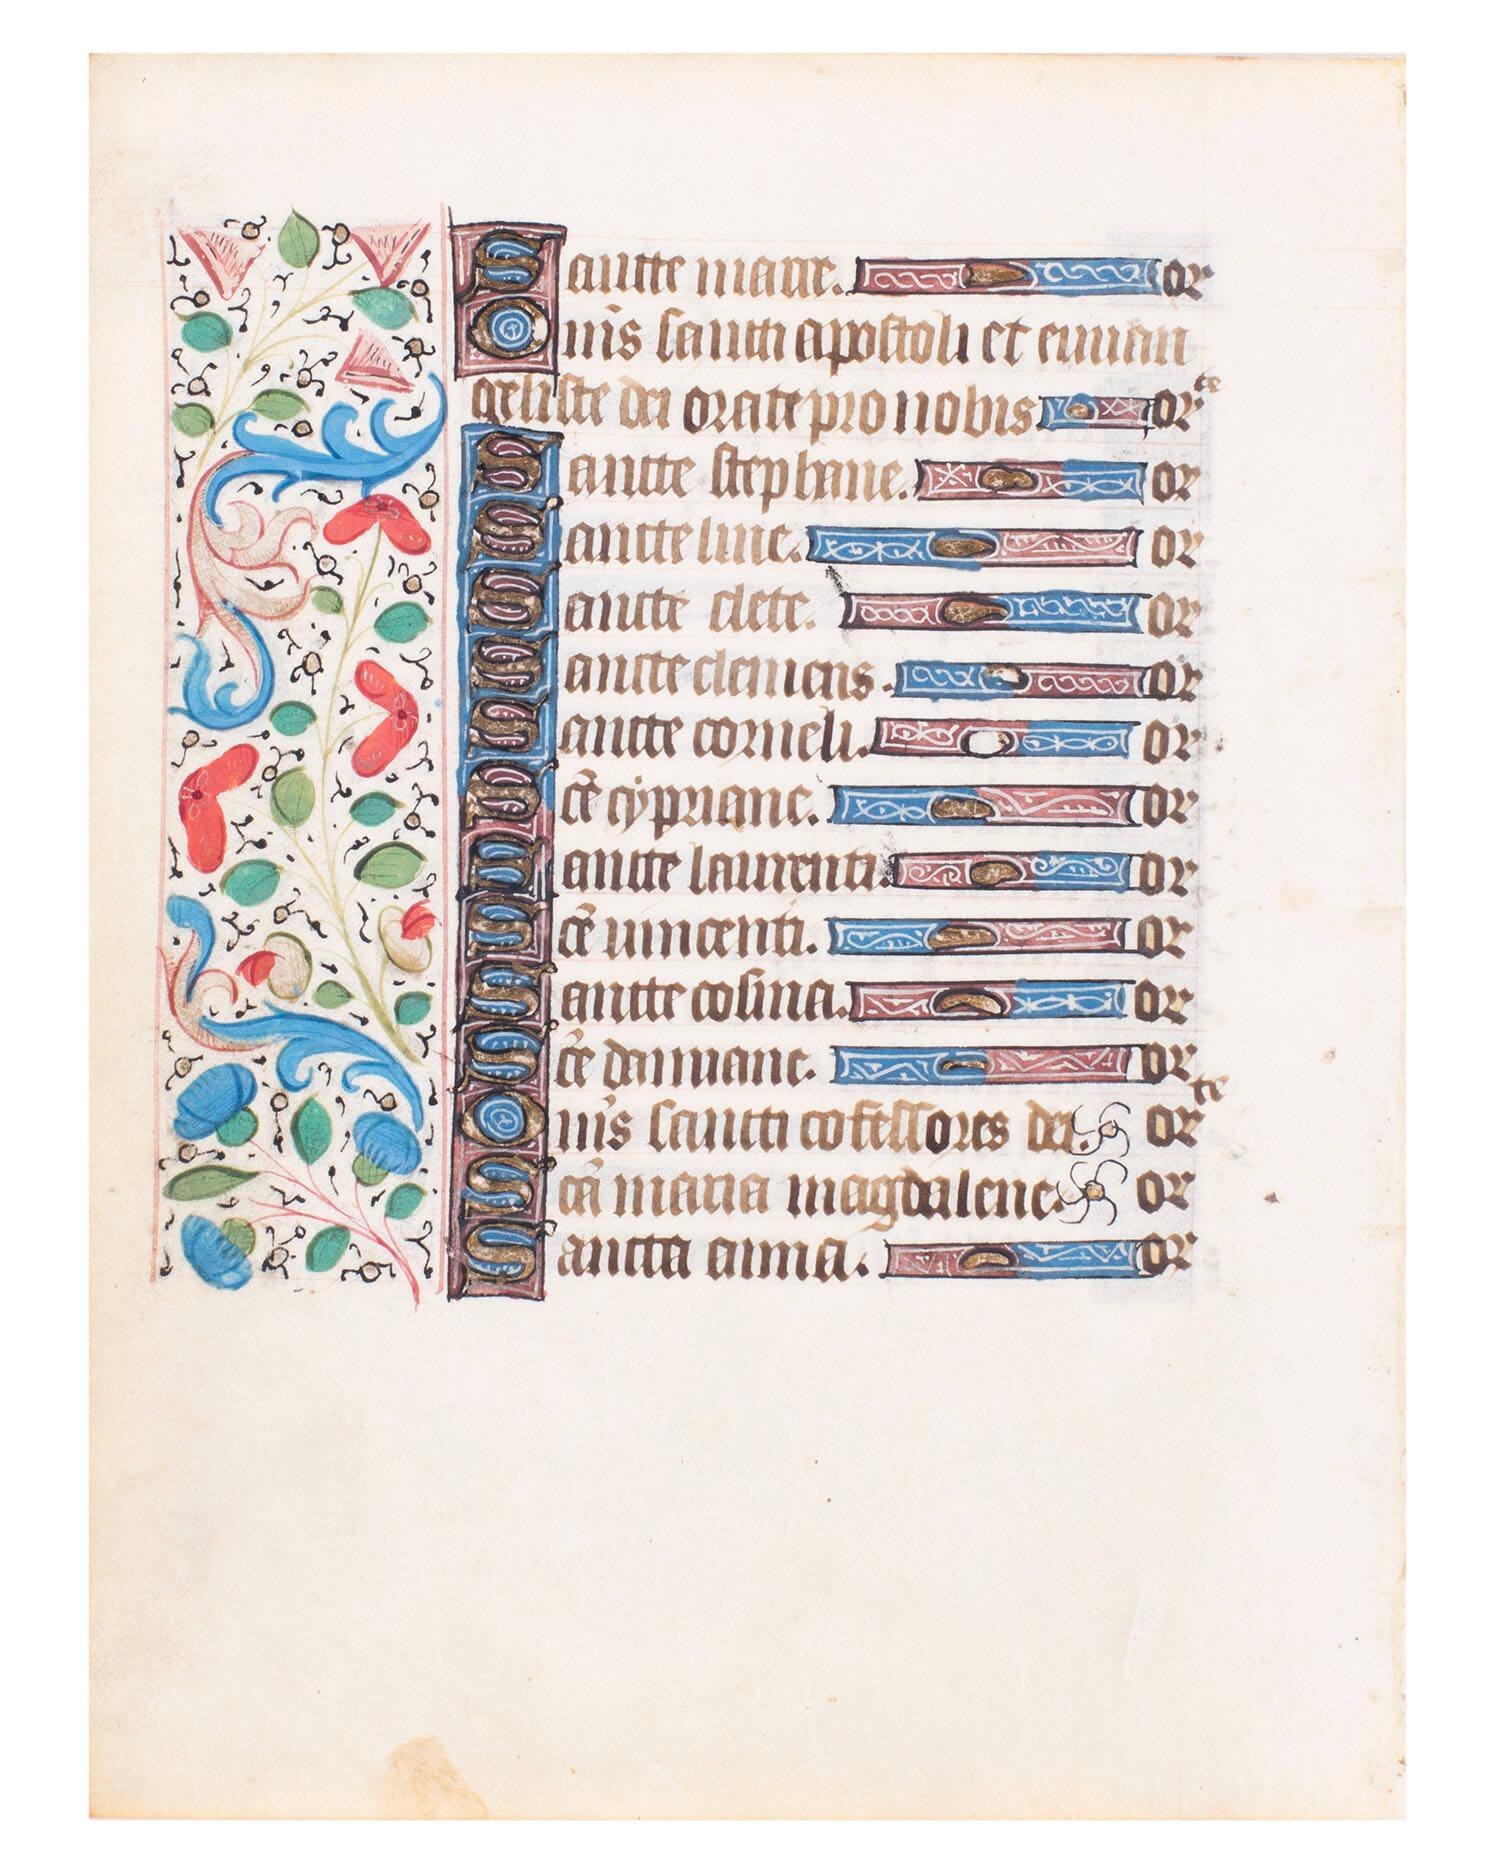 Sancte marce. or
Om̄s sancti apostoli et euuan
geliste dei orate pro nobis orᵗᵉ
Sancte stephane. or
Sancte line. or
Sancte clete. or
Sancte clemens. or
Sancte corneli. or
Sc̄e cypriane. or
Sancte laurenti. or
Sc̄e vincenti. or
Sancte cosma. or
Sc̄e damiane. or
Om̄s sancti cofessores dei. orᵗᵉ
Sc̄a maria magdalene. or
Sancta anna. or